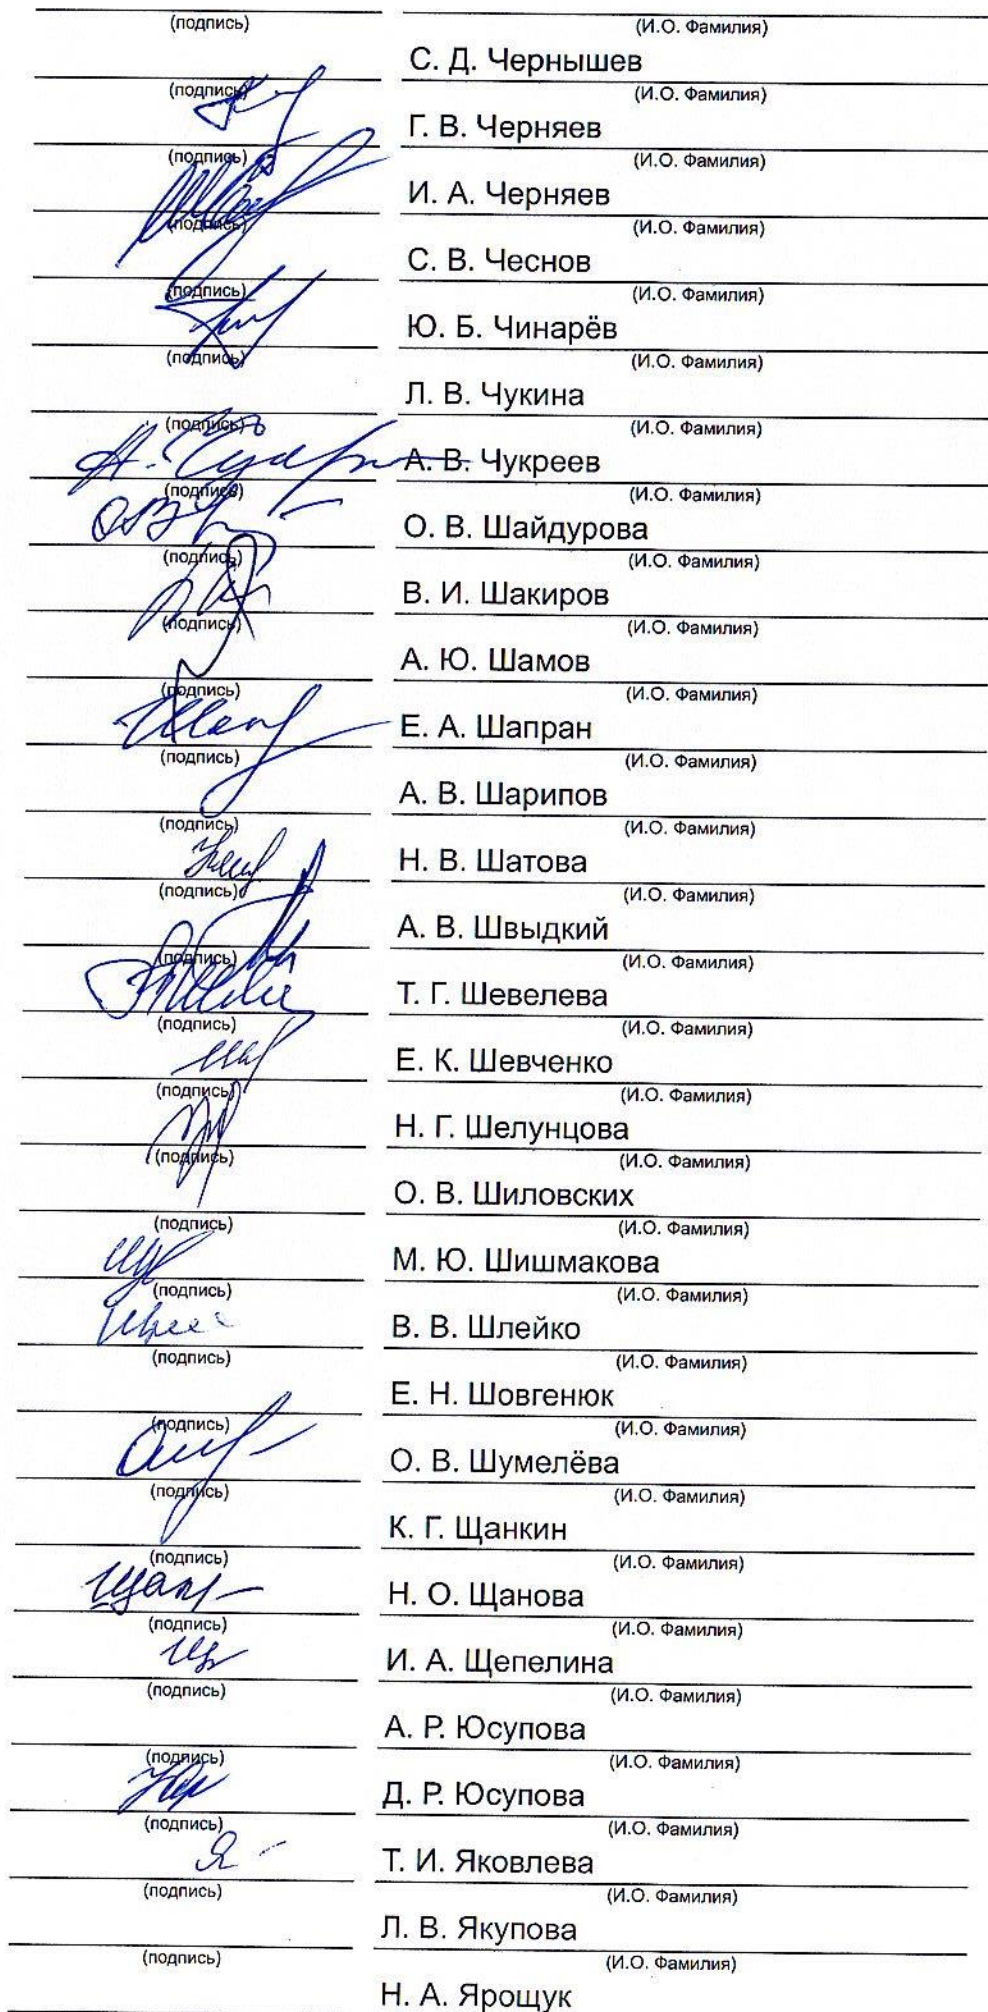 (подпись) (И.О. Фамилия)
С. Д. Чернышев
(подпись) (И.О. Фамилия)
Г. В. Черняев
(подпись) (И.О. Фамилия)
И. А. Черняев
(подпись) (И.О. Фамилия)
С. В. Чеснов
(подпись) (И.О. Фамилия)
Ю. Б. Чинарёв
(подпись) (И.О. Фамилия)
Л. В. Чукина
(подпись) (И.О. Фамилия)
А. В. Чукреев
(подпись) (И.О. Фамилия)
О. В. Шайдурова
(подпись) (И.О. Фамилия)
В. И. Шакиров
(подпись) (И.О. Фамилия)
А. Ю. Шамов
(подпись) (И.О. Фамилия)
Е. А. Шапран
(подпись) (И.О. Фамилия)
А. В. Шарипов
(подпись) (И.О. Фамилия)
Н. В. Шатова
(подпись) (И.О. Фамилия)
А. В. Швыдкий
(подпись) (И.О. Фамилия)
Т. Г. Шевелева
(подпись) (И.О. Фамилия)
Е. К. Шевченко
(подпись) (И.О. Фамилия)
Н. Г. Шелунцова
(подпись) (И.О. Фамилия)
О. В. Шиловских
(подпись) (И.О. Фамилия)
М. Ю. Шишмакова
(подпись) (И.О. Фамилия)
В. В. Шлейко
(подпись) (И.О. Фамилия)
Е. Н. Шовгенюк
(подпись) (И.О. Фамилия)
О. В. Шумелёва
(подпись) (И.О. Фамилия)
К. Г. Щанкин
(подпись) (И.О. Фамилия)
Н. О. Щанова
(подпись) (И.О. Фамилия)
И. А. Щепелина
(подпись) (И.О. Фамилия)
А. Р. Юсупова
(подпись) (И.О. Фамилия)
Д. Р. Юсупова
(подпись) (И.О. Фамилия)
Т. И. Яковлева
(подпись) (И.О. Фамилия)
Л. В. Якупова
(подпись) (И.О. Фамилия)
Н. А. Ярощук